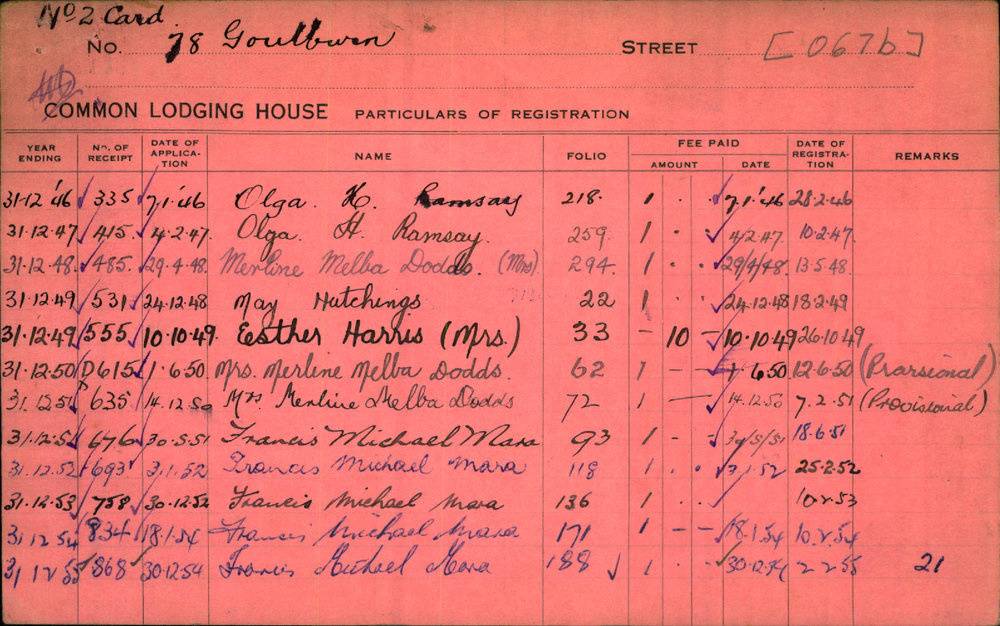 No 2 Card
No. 78 Goulburn STREET [067b]
COMMON LODGING HOUSE PARTICULARS OF REGISTRATION
YEAR ENDING NO. OF RECEIPT DATE OF APPLICA-TION NAME FOLIO FEE PAID AMOUNT DATE DATE OF REGISTRA-TION REMARKS
31·12·'46 335 7·1·'46 Olga. H. Ramsay 218. 1 · · 7·1·'46 28·2·46
31·12·47 415· 4·2·47. Olga. H. Ramsay. 259. 1 · · 4/2/47. 10·2·47.
31·12·48. 485. 29·4·48. Merline Melba Dodds. (Mrs) 294. 1 · · 29/4/48. 13·5·48.
31·12·49 531 24·12·48 May Hutchings 22 1 · · 24·12·48 18·2·49
31·12·49 555 10·10·49 Esther Harris (Mrs.) 33 – 10 – 10·10·49 26·10·49
31·12·50 D615 1·6·50 Mrs. Merline Melba Dodds. 62 1 – – 1·6·50 12·6·50 (Prorsional)
31.12.51 635 14.12.50 Mrs Merline Melba Dodds 72 1 — 14.12.50 7.2.51 (Provisional)
31·12·51 676 30·5·51 Francis Michael Mara 93 1 – – 30/5/51 18·6·51
31.12.52 693 3.1.52 Francis Michael Mara 118 1 · · 3.1.52 25·2·52
31·12·53 758 30·12·52 Francis Michael Mara 136 1 · · 10·2·53
31 12 54 834 18·1·54 Francis Michael Mara 171 1 – – 18·1·54 10.2.54
31 12 55 868 30·12·54 Francis Michael Mara 188 1 · · 30·12·54 2 2 55 21